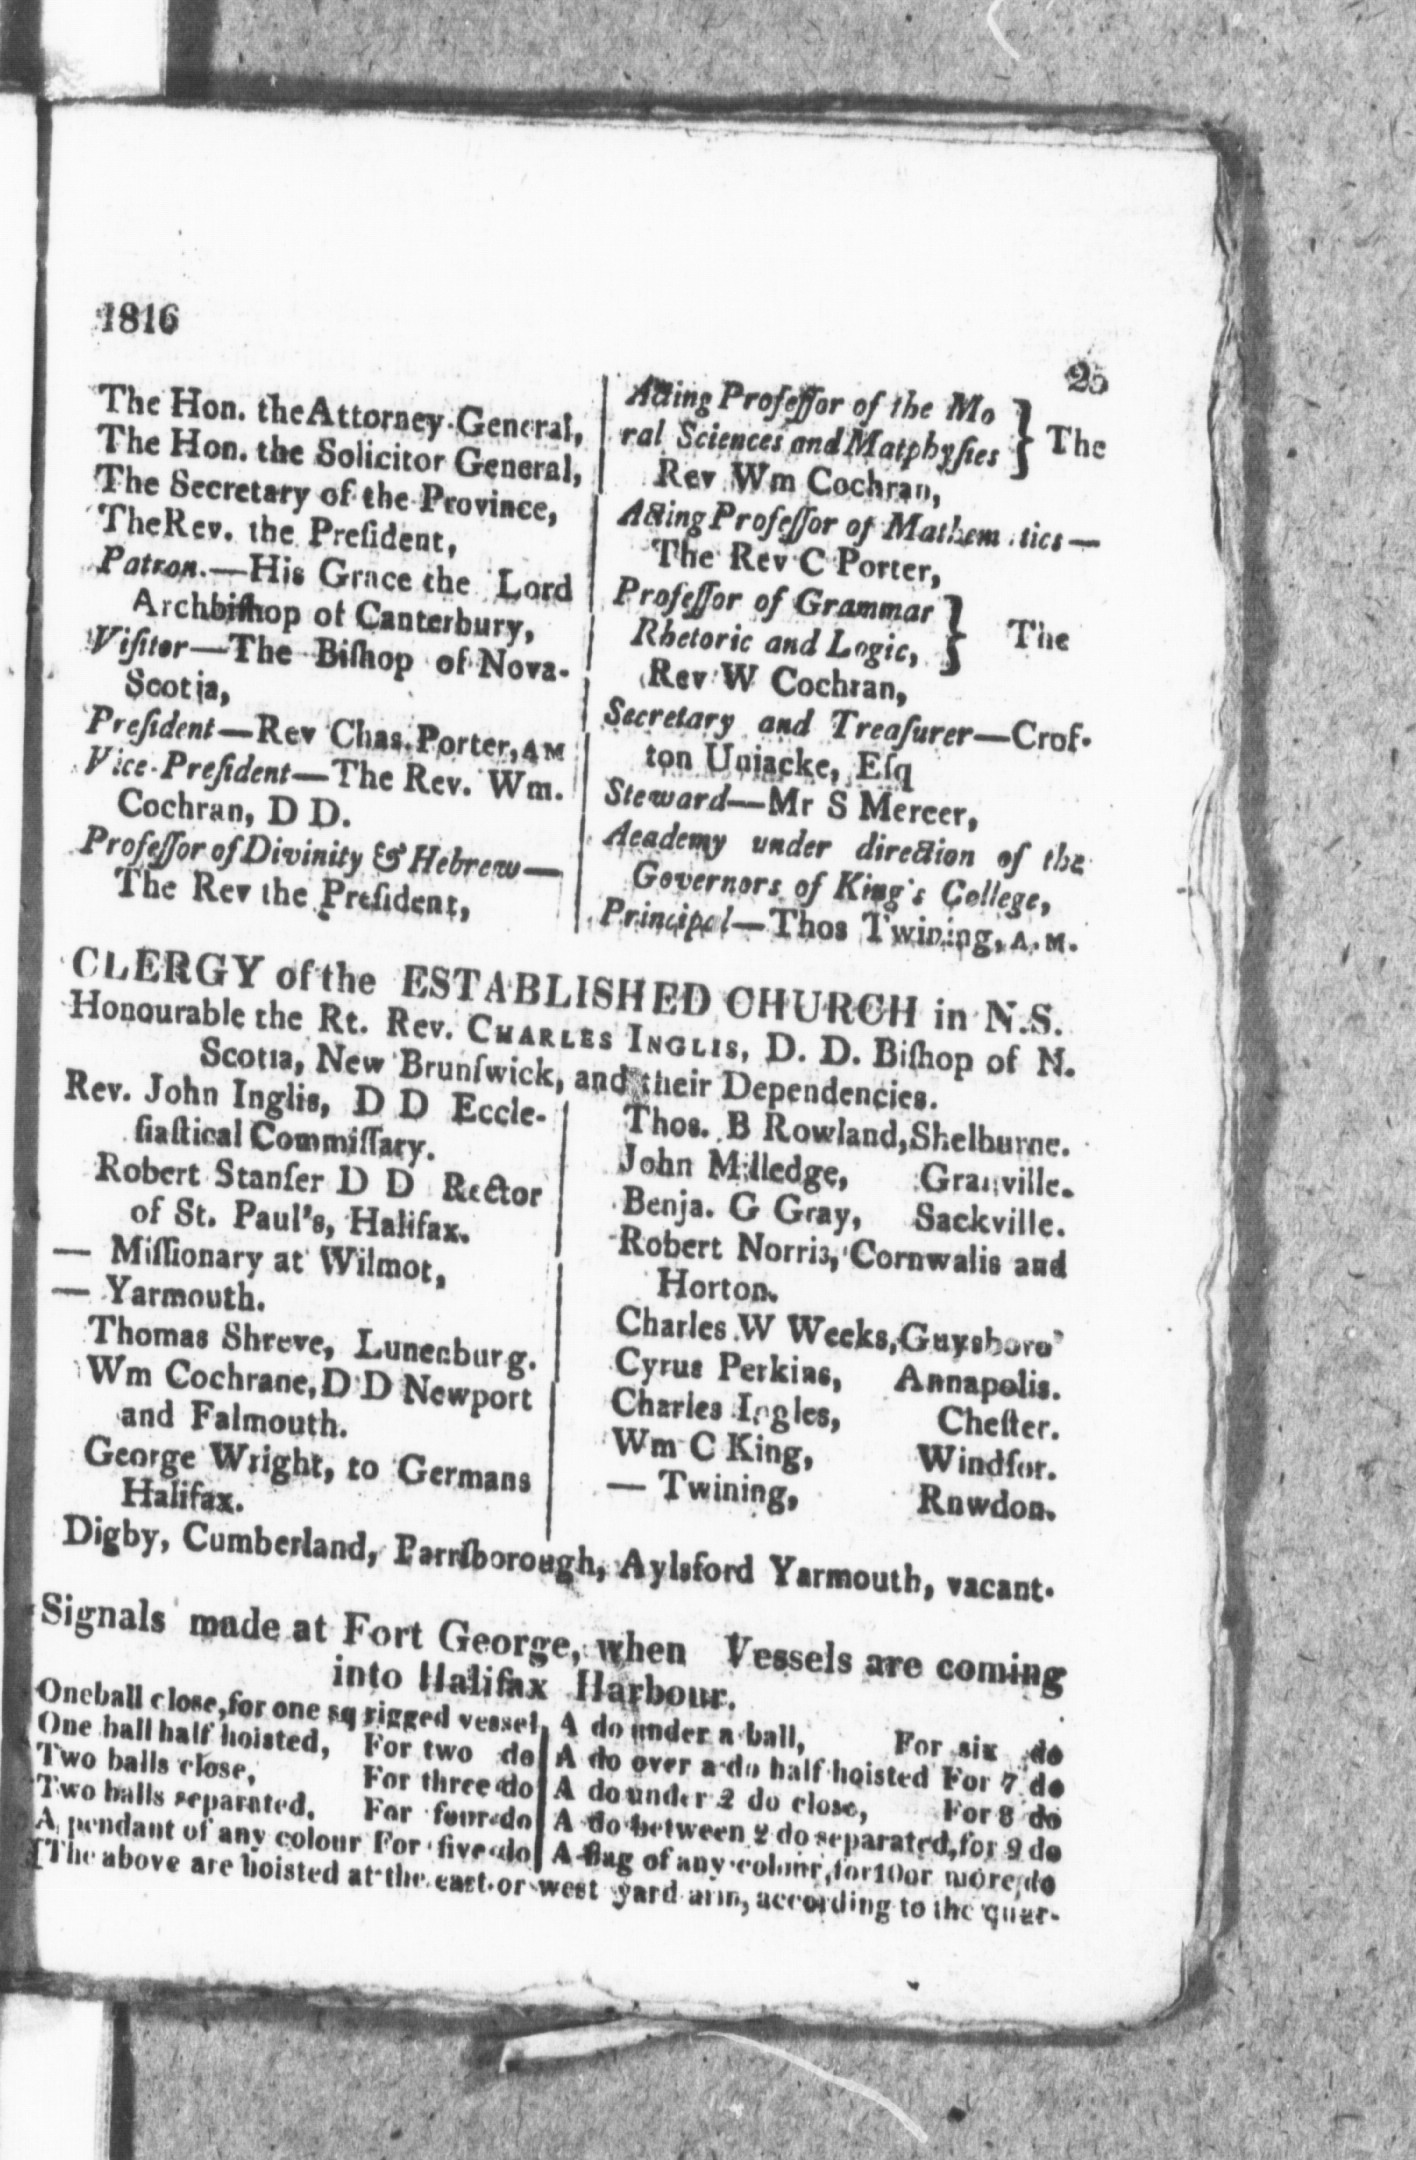 1816
25
The Hon. the Attorney General,
The Hon. the Solicitor General,
The Secretary of the Province,
The Rev. the Preſident,
Patron.—His Grace the Lord
Archbiſhop of Canterbury,
Viſitor—The Biſhop of Nova-
Scotia,
Preſident—Rev Chas. Porter, AM
Vice-Preſident—The Rev. Wm.
Cochran, D D.
Profeſſor of Divinity & Hebrew—
The Rev the Preſident,
Acting Profeſſor of the Mo } The
ral Sciences and Matphyſies
Rev Wm Cochran,
Acting Profeſſor of Mathem tics—
The Rev C Porter,
Profeſſor of Grammar } The
Rhetoric and Logic,
Rev W Cochran,
Secretary and Treaſurer—Crof-
ton Uniacke, Eſq
Steward—Mr S Mercer,
Academy under direction of the
Governors of King's College,
Principal—Thos Twining, A.M.
CLERGY of the ESTABLISHED CHURCH in N.S.
Honourable the Rt. Rev. CHARLES INGLIS, D. D. Biſhop of N.
Scotia, New Brunſwick, and their Dependencies.
Rev. John Inglis, D D Eccle-
ſiaſtical Commiſſary.
Robert Stanſer D D Rector
of St. Paul's, Halifax.
— Miſſionary at Wilmot,
— Yarmouth.
Thomas Shreve, Lunenburg.
Wm Cochrane, D D Newport
and Falmouth.
George Wright, to Germans
Halifax.
Thos. B Rowland, Shelburne.
John Milledge, Granville.
Benja. G Gray, Sackville.
Robert Norris, Cornwalis and
Horton.
Charles W Weeks, Guysboro'
Cyrus Perkins, Annapolis.
Charles Ingles, Cheſter.
Wm C King, Windſor.
— Twining, Rnwdon.
Digby, Cumberland, Parrſborough, Aylsford Yarmouth, vacant.
Signals made at Fort George, when Vessels are coming
into Halifax Harbour.
One ball close, for one sq rigged vessel,
One ball half hoisted, For two do
Two balls close, For three do
Two balls separated, For four do
A pendant of any colour For five do
A do under a ball, For six do
A do over a do half hoisted For 7 do
A do under 2 do close, For 8 do
A do between 2 do separated, for 9 do
A flag of any colour, for 10 or more do
[The above are hoisted at the east or west yard arm, according to the quar-